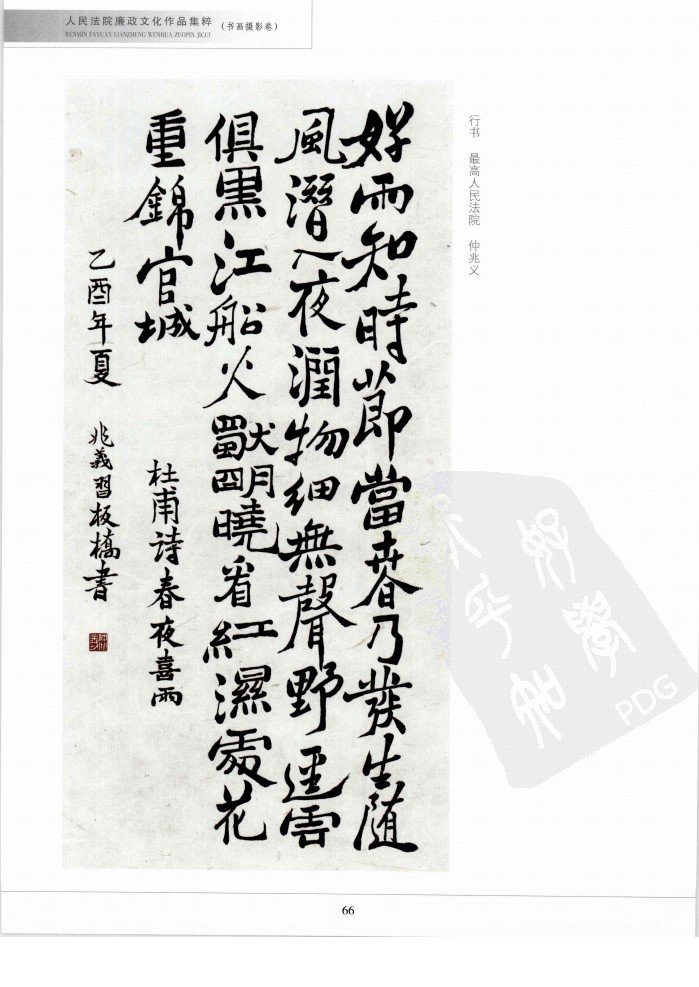 人民法院廉政文化作品集粹（书画摄影卷）
RENMIN FAYUAN LIANZHENG WENHUA ZUOPIN JICUI
行书 最高人民法院 仲兆义
好雨知時節當春乃發生随
風潛入夜潤物细無聲野逕雲
俱黒江船火獨明曉看紅濕處花
重錦官城
杜甫詩春夜喜雨
乙酉年夏 兆義習板橋書
PDG
66